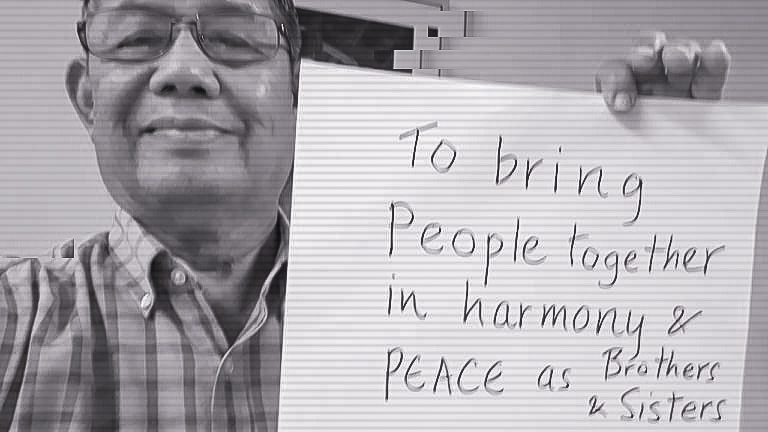 To bring
People together
in harmony &
PEACE as Brothers
& Sisters